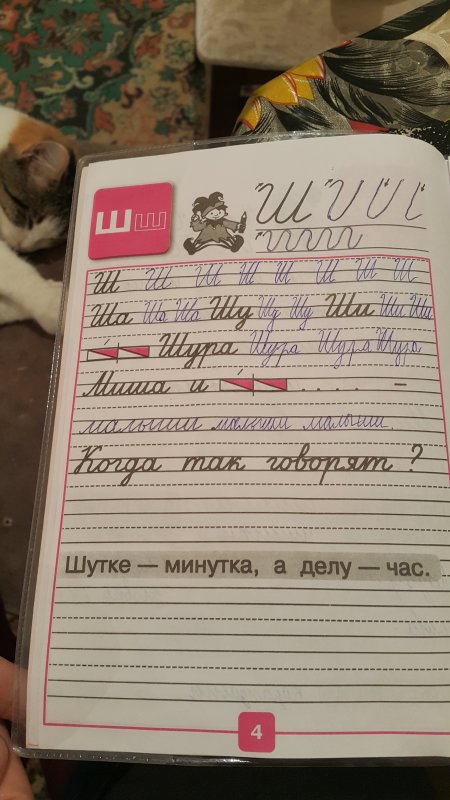 Шш Ш Ш Ш Ш
Ш Ш Ш Ш Ш Ш Ш Ш
Ша Ша Ша Шу Шу Шу Ши Ши Ши
Шура Шура Шура Шура
Миша и . . . . –
малыши малыши малыши.
Когда так говорят ?
Шутке — минутка, а делу — час.
4